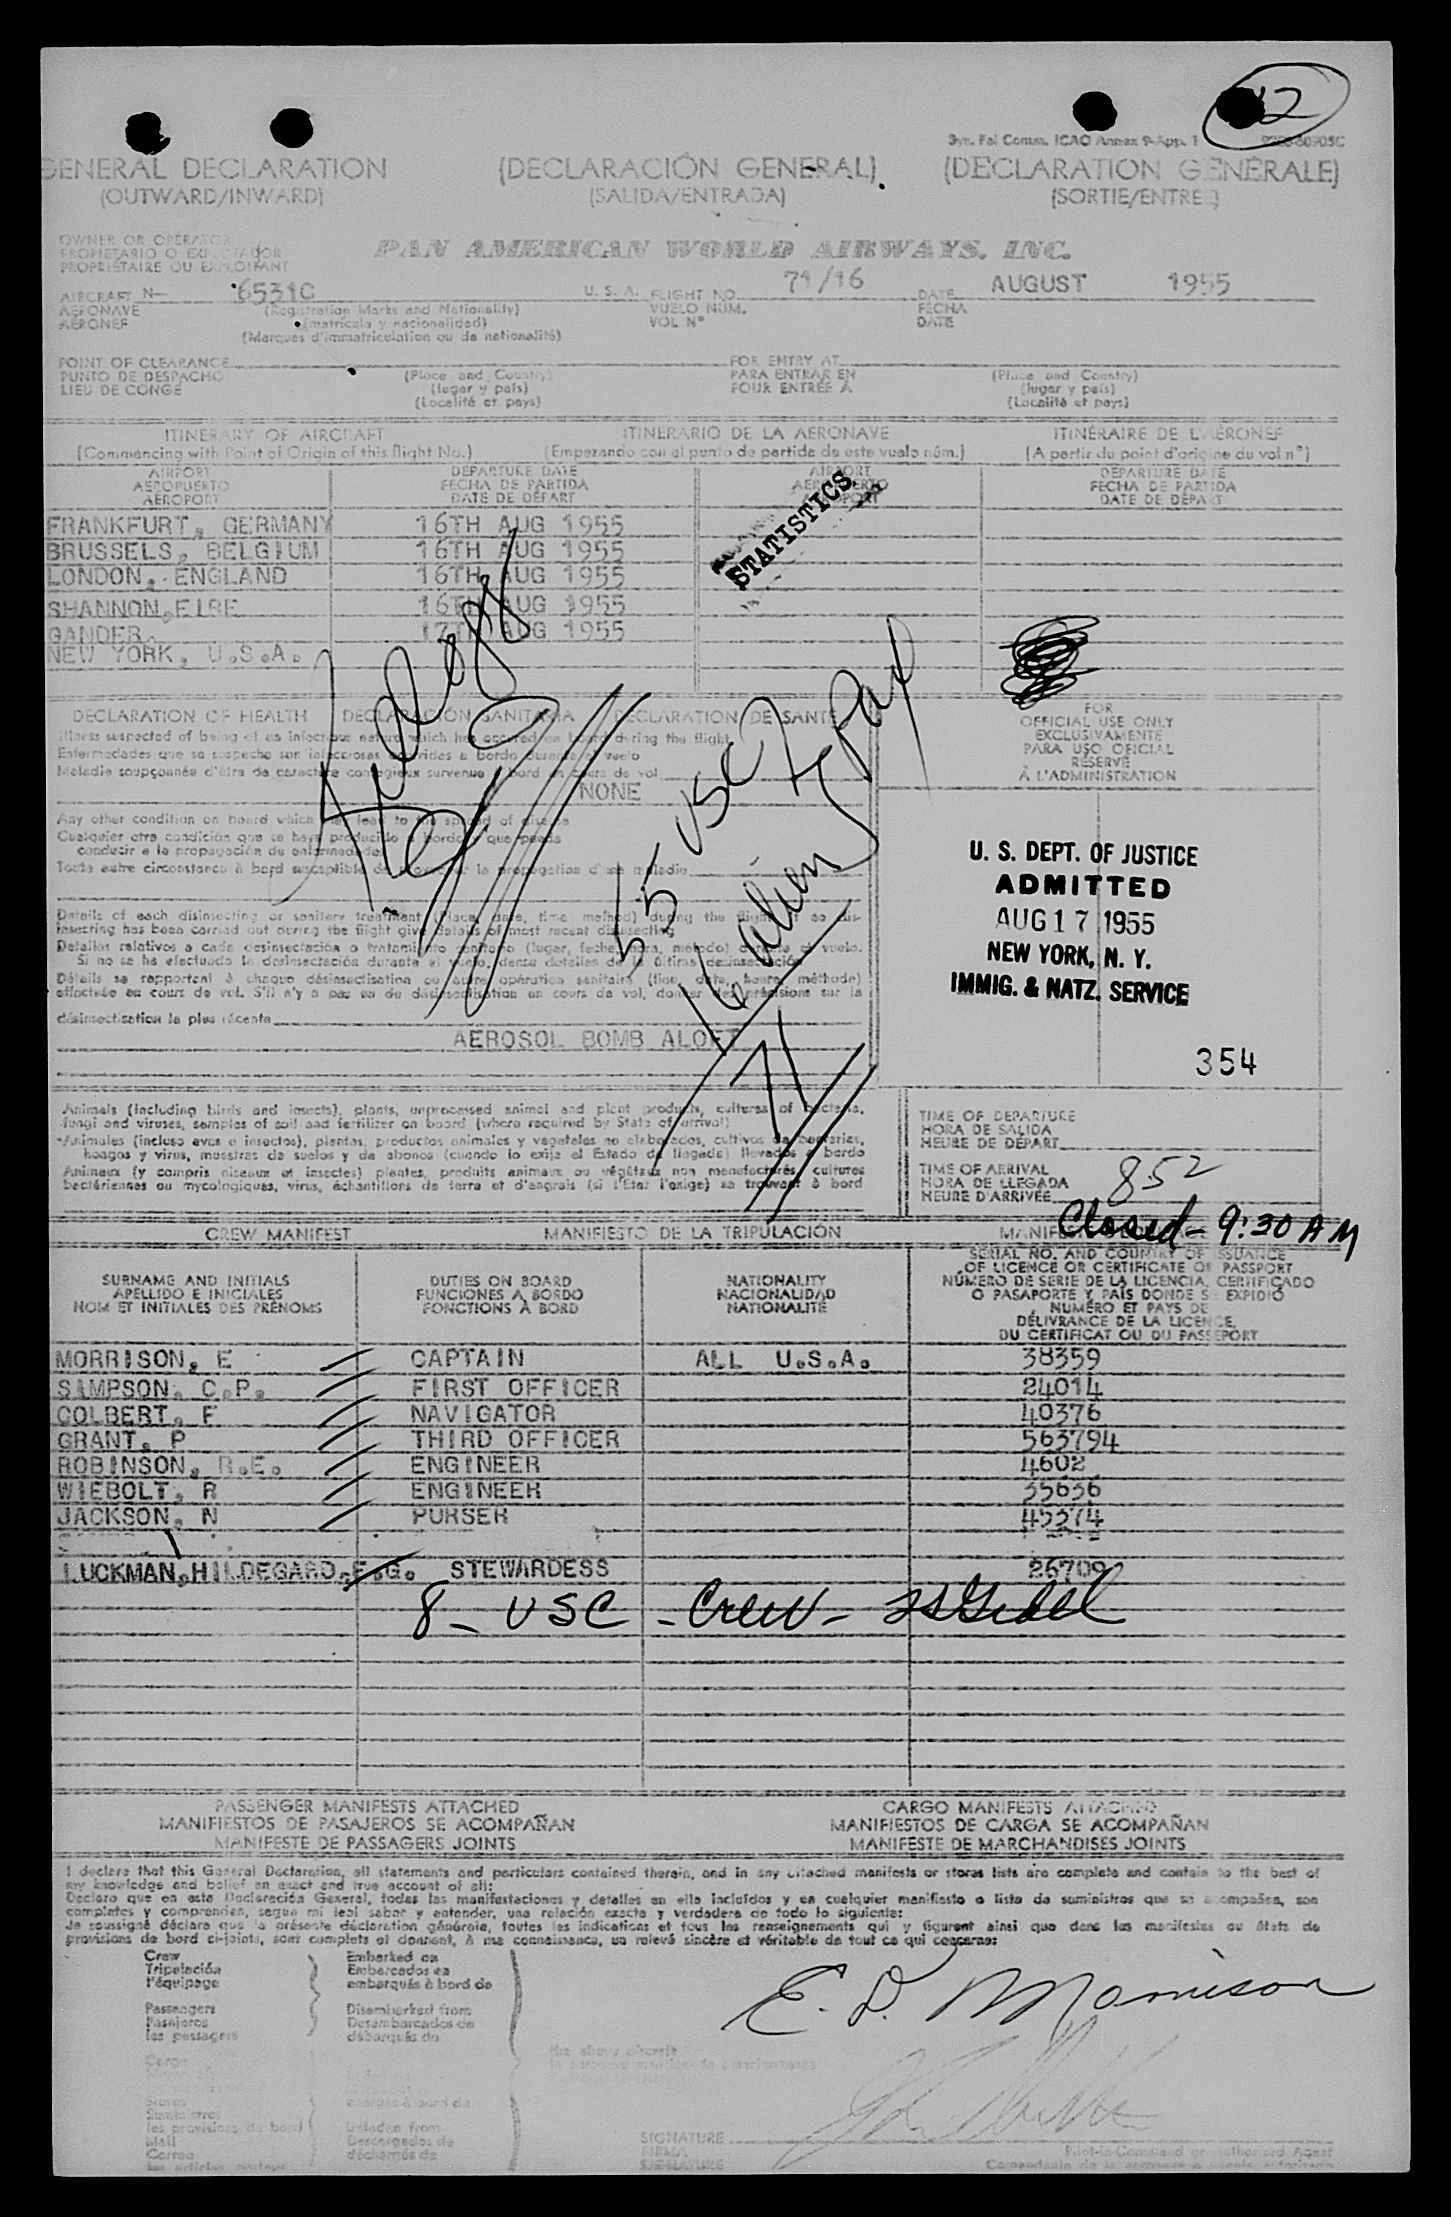 12
Syn. Fal Comm. ICAO Annex 9-App. 1
GENERAL DECLARATION (DECLARACIÓN GENERAL) (DECLARATION GÉNÉRALE)
(OUTWARD/INWARD) (SALIDA/ENTRADA) (SORTIE/ENTRÉE)
OWNER OR OPERATOR
PROPIETARIO O EXPLOTADOR PAN AMERICAN WORLD AIRWAYS, INC.
PROPRIÉTAIRE OU EXPLOITANT
AIRCRAFT N- 6531C U. S. A. FLIGHT NO. 71/16 DATE AUGUST 1955
AERONAVE (Registration Marks and Nationality) VUELO NÚM. FECHA
AÉRONEF (matrícula y nacionalidad) VOL Nº DATE
(Marques d'immatriculation ou de nationalité)
POINT OF CLEARANCE FOR ENTRY AT
PUNTO DE DESPACHO (Place and Country) PARA ENTRAR EN (Place and Country)
LIEU DE CONGÉ (lugar y país) POUR ENTRÉE À (lugar y país)
(Localité et pays) (Localité et pays)
ITINERARY OF AIRCRAFT ITINERARIO DE LA AERONAVE ITINÉRAIRE DE L'AÉRONEF
(Commencing with Point of Origin of this flight No.) (Empezando con el punto de partida de este vuelo núm.) (A partir du point d'origine du vol nº)
AIRPORT DEPARTURE DATE AIRPORT DEPARTURE DATE
AEROPUERTO FECHA DE PARTIDA AEROPUERTO FECHA DE PARTIDA
AÉROPORT DATE DE DÉPART AÉROPORT DATE DE DÉPART
STATISTICS
FRANKFURT, GERMANY 16TH AUG 1955
BRUSSELS, BELGIUM 16TH AUG 1955
LONDON, ENGLAND 16TH AUG 1955
SHANNON, EIRE 16TH AUG 1955
GANDER, 17TH AUG 1955
NEW YORK, U.S.A.
DECLARATION OF HEALTH DECLARACIÓN SANITARIA DÉCLARATION DE SANTÉ
Illness suspected of being of an infectious nature which has occurred on board during the flight
Enfermedades que se sospecha son infecciosas ocurridas a bordo durante el vuelo
Maladie soupçonnée d'être de caractère contagieux survenue à bord en cours de vol
NONE
FOR
OFFICIAL USE ONLY
EXCLUSIVAMENTE
PARA USO OFICIAL
RÉSERVÉ
À L'ADMINISTRATION
Any other condition on board which may lead to the spread of disease
Cualquier otra condición que se haya producido a bordo y que pueda
conducir a la propagación de enfermedades
Toute autre circonstance à bord susceptible de provoquer la propagation d'une maladie
55 USC
16 alien
71
U. S. DEPT. OF JUSTICE
ADMITTED
AUG 17 1955
NEW YORK, N. Y.
IMMIG. & NATZ. SERVICE
354
Details of each disinsecting or sanitary treatment (place, date, time method) during the flight. If no disinsecting has been carried out during the flight give details of most recent disinsecting
Detalles relativos a cada desinsectación o tratamiento sanitario (lugar, fecha, hora, método) durante el vuelo.
Si no se ha efectuado la desinsectación durante el vuelo, dense detalles de la última desinsectación
Détails se rapportant à chaque désinsectisation ou autre opération sanitaire (lieu, date, heure, méthode)
effectuée en cours de vol. S'il n'y a pas eu de désinsectisation en cours de vol, donner des précisions sur la
désinsectisation la plus récente
AEROSOL BOMB ALOFT
Animals (including birds and insects), plants, unprocessed animal and plant products, cultures of bacteria,
fungi and viruses, samples of soil and fertilizer on board (where required by State of arrival)
Animales (incluso aves e insectos), plantas, productos animales y vegetales no elaborados, cultivos de bacterias,
hongos y virus, muestras de suelos y de abonos (cuando lo exija el Estado de llegada) llevados a bordo
Animaux (y compris oiseaux et insectes) plantes, produits animaux ou végétaux non manufacturés, cultures
bactériennes ou mycologiques, virus, échantillons de terre et d'engrais (si l'État l'exige) se trouvant à bord
TIME OF DEPARTURE
HORA DE SALIDA
HEURE DE DÉPART
TIME OF ARRIVAL
HORA DE LLEGADA 852
HEURE D'ARRIVÉE
Closed - 9:30 AM
CREW MANIFEST MANIFIESTO DE LA TRIPULACIÓN
SURNAME AND INITIALS DUTIES ON BOARD NATIONALITY
APELLIDO E INICIALES FUNCIONES A BORDO NACIONALIDAD
NOM ET INITIALES DES PRÉNOMS FONCTIONS À BORD NATIONALITÉ
SERIAL NO. AND COUNTRY OF ISSUANCE
OF LICENCE OR CERTIFICATE OF PASSPORT
NÚMERO DE SERIE DE LA LICENCIA, CERTIFICADO
O PASAPORTE Y PAÍS DONDE SE EXPIDIÓ
NUMÉRO ET PAYS DE
DÉLIVRANCE DE LA LICENCE,
DU CERTIFICAT OU DU PASSEPORT
MORRISON, E CAPTAIN ALL U.S.A. 38359
SIMPSON, C.P. FIRST OFFICER 24014
COLBERT, F NAVIGATOR 40376
GRANT, P THIRD OFFICER 563794
ROBINSON, R.E. ENGINEER 4602
WIEBOLT, R ENGINEER 35636
JACKSON, N PURSER 45374
LUCKMAN, HILDEGARD.E.G. STEWARDESS 26709
8 - USC - Crew -
PASSENGER MANIFESTS ATTACHED CARGO MANIFESTS ATTACHED
MANIFIESTOS DE PASAJEROS SE ACOMPAÑAN MANIFIESTOS DE CARGA SE ACOMPAÑAN
MANIFESTE DE PASSAGERS JOINTS MANIFESTE DE MARCHANDISES JOINTS
I declare that this General Declaration, all statements and particulars contained therein, and in any attached manifests or stores lists are complete and contain to the best of
my knowledge and belief an exact and true account of all:
Declaro que en esta Declaración General, todas las manifestaciones y detalles en ella incluídos y en cualquier manifiesto o lista de suministros que se acompañen, son
completos y comprenden, según mi leal saber y entender, una relación exacta y verdadera de todo lo siguiente:
Je soussigné déclare que la présente déclaration générale, toutes les indications et tous les renseignements qui y figurent ainsi que dans les manifestes ou états de
provisions de bord ci-joints, sont complets et donnent, à ma connaissance, un relevé sincère et véritable de tout ce qui concerne:
Crew Embarked on
Tripulación Embarcados en
l'équipage embarqués à bord de
Passengers Disembarked from
Pasajeros Desembarcados de
les passagers débarqués de
E. D. Morrison
Cargo
Stores
Suministros
les provisions de bord Unladen from
Mail Descargados de
Correo déchargés de
SIGNATURE
FIRMA Pilot-in-Command or Authorized Agent
SIGNATURE